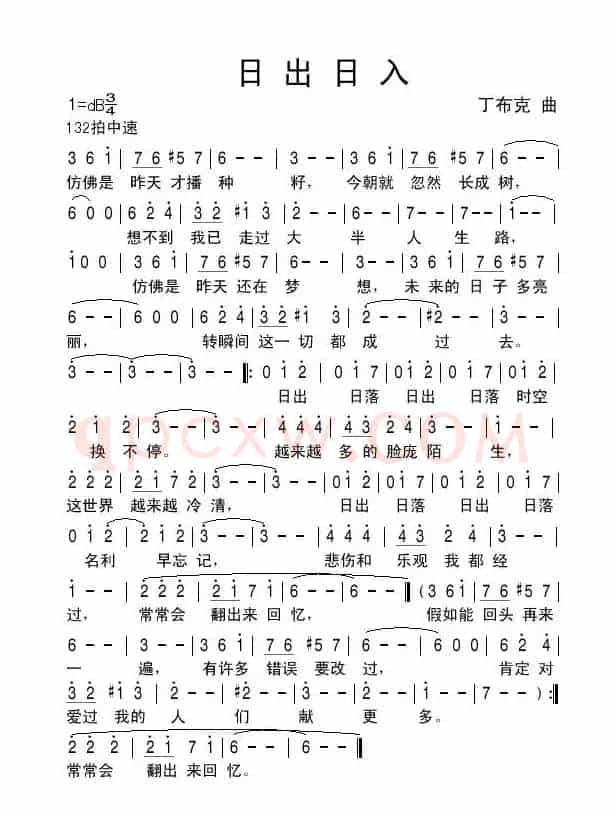 日出日入
1=dB3/4
丁布克 曲
132拍中速
3 6 i | 7 6 #5 7 | 6 - - | 3 - - | 3 6 i | 7 6 #5 7 | 6 - - |
仿佛是 昨天 才播 种 籽, 今朝就 忽然 长成 树,
6 0 0 | 6 2 4 | 3 2 #i 3 | 2 - - | 3 - - | 6 - - | 7 - - | i - - |
想不到 我已 走过 大 半 人 生 路,
i 0 0 | 3 6 i | 7 6 #5 7 | 6 - - | 3 - - | 3 6 i | 7 6 #5 7 |
仿佛是 昨天 还在 梦 想, 未 来的 日 子 多亮
6 - - | 6 0 0 | 6 2 4 | 3 2 #i 3 | 2 - - | #2 - - | 3 - - |
丽, 转瞬间 这一 切都 成 过 去。
3 - - | 3 - - | 3 - - ‖: 0 i 2 | 0 i 7 | 0 i 2 | 0 i 7 | 0 i 2 |
日出 日落 日出 日落 时空
2 i | 2 - - | 3 - - | 3 - - | 4 4 4 | 4 3 2 4 | 3 - - |
换 不 停。 越来越 多 的 脸庞 陌 生,
2 2 2 | 2 i 2 | 3 - - | 3 - - | 0 i 2 | 0 i 7 | 0 i 2 | 0 i 7 |
这世界 越来越 冷 清, 日出 日落 日出 日落
0 i 2 | 2 i | 2 - - | 3 - - | 3 - - | 4 4 4 | 4 3 2 4 |
名利 早忘 记, 悲伤和 乐观 我 都 经
i - - | 2 2 2 | 2 i 7 i | 6 - - | 6 - - ‖ (3 6 i | 7 6 #5 7 |
过, 常常会 翻出来 回 忆, 假如能 回头 再来
6 - - | 3 - - | 3 6 i | 7 6 #5 7 | 6 - - | 6 0 0 | 6 2 4 |
一 遍, 有许多 错误 要改 过, 肯定 对
3 2 #i 3 | 2 - - | 3 - - | 2 - - | i - - | 7 - - ) :‖
爱过 我的 人 们 献 更 多。
2 2 2 | 2 i 7 i | 6 - - | 6 - - ‖
常常会 翻出 来回 忆。
qpcxw.COM